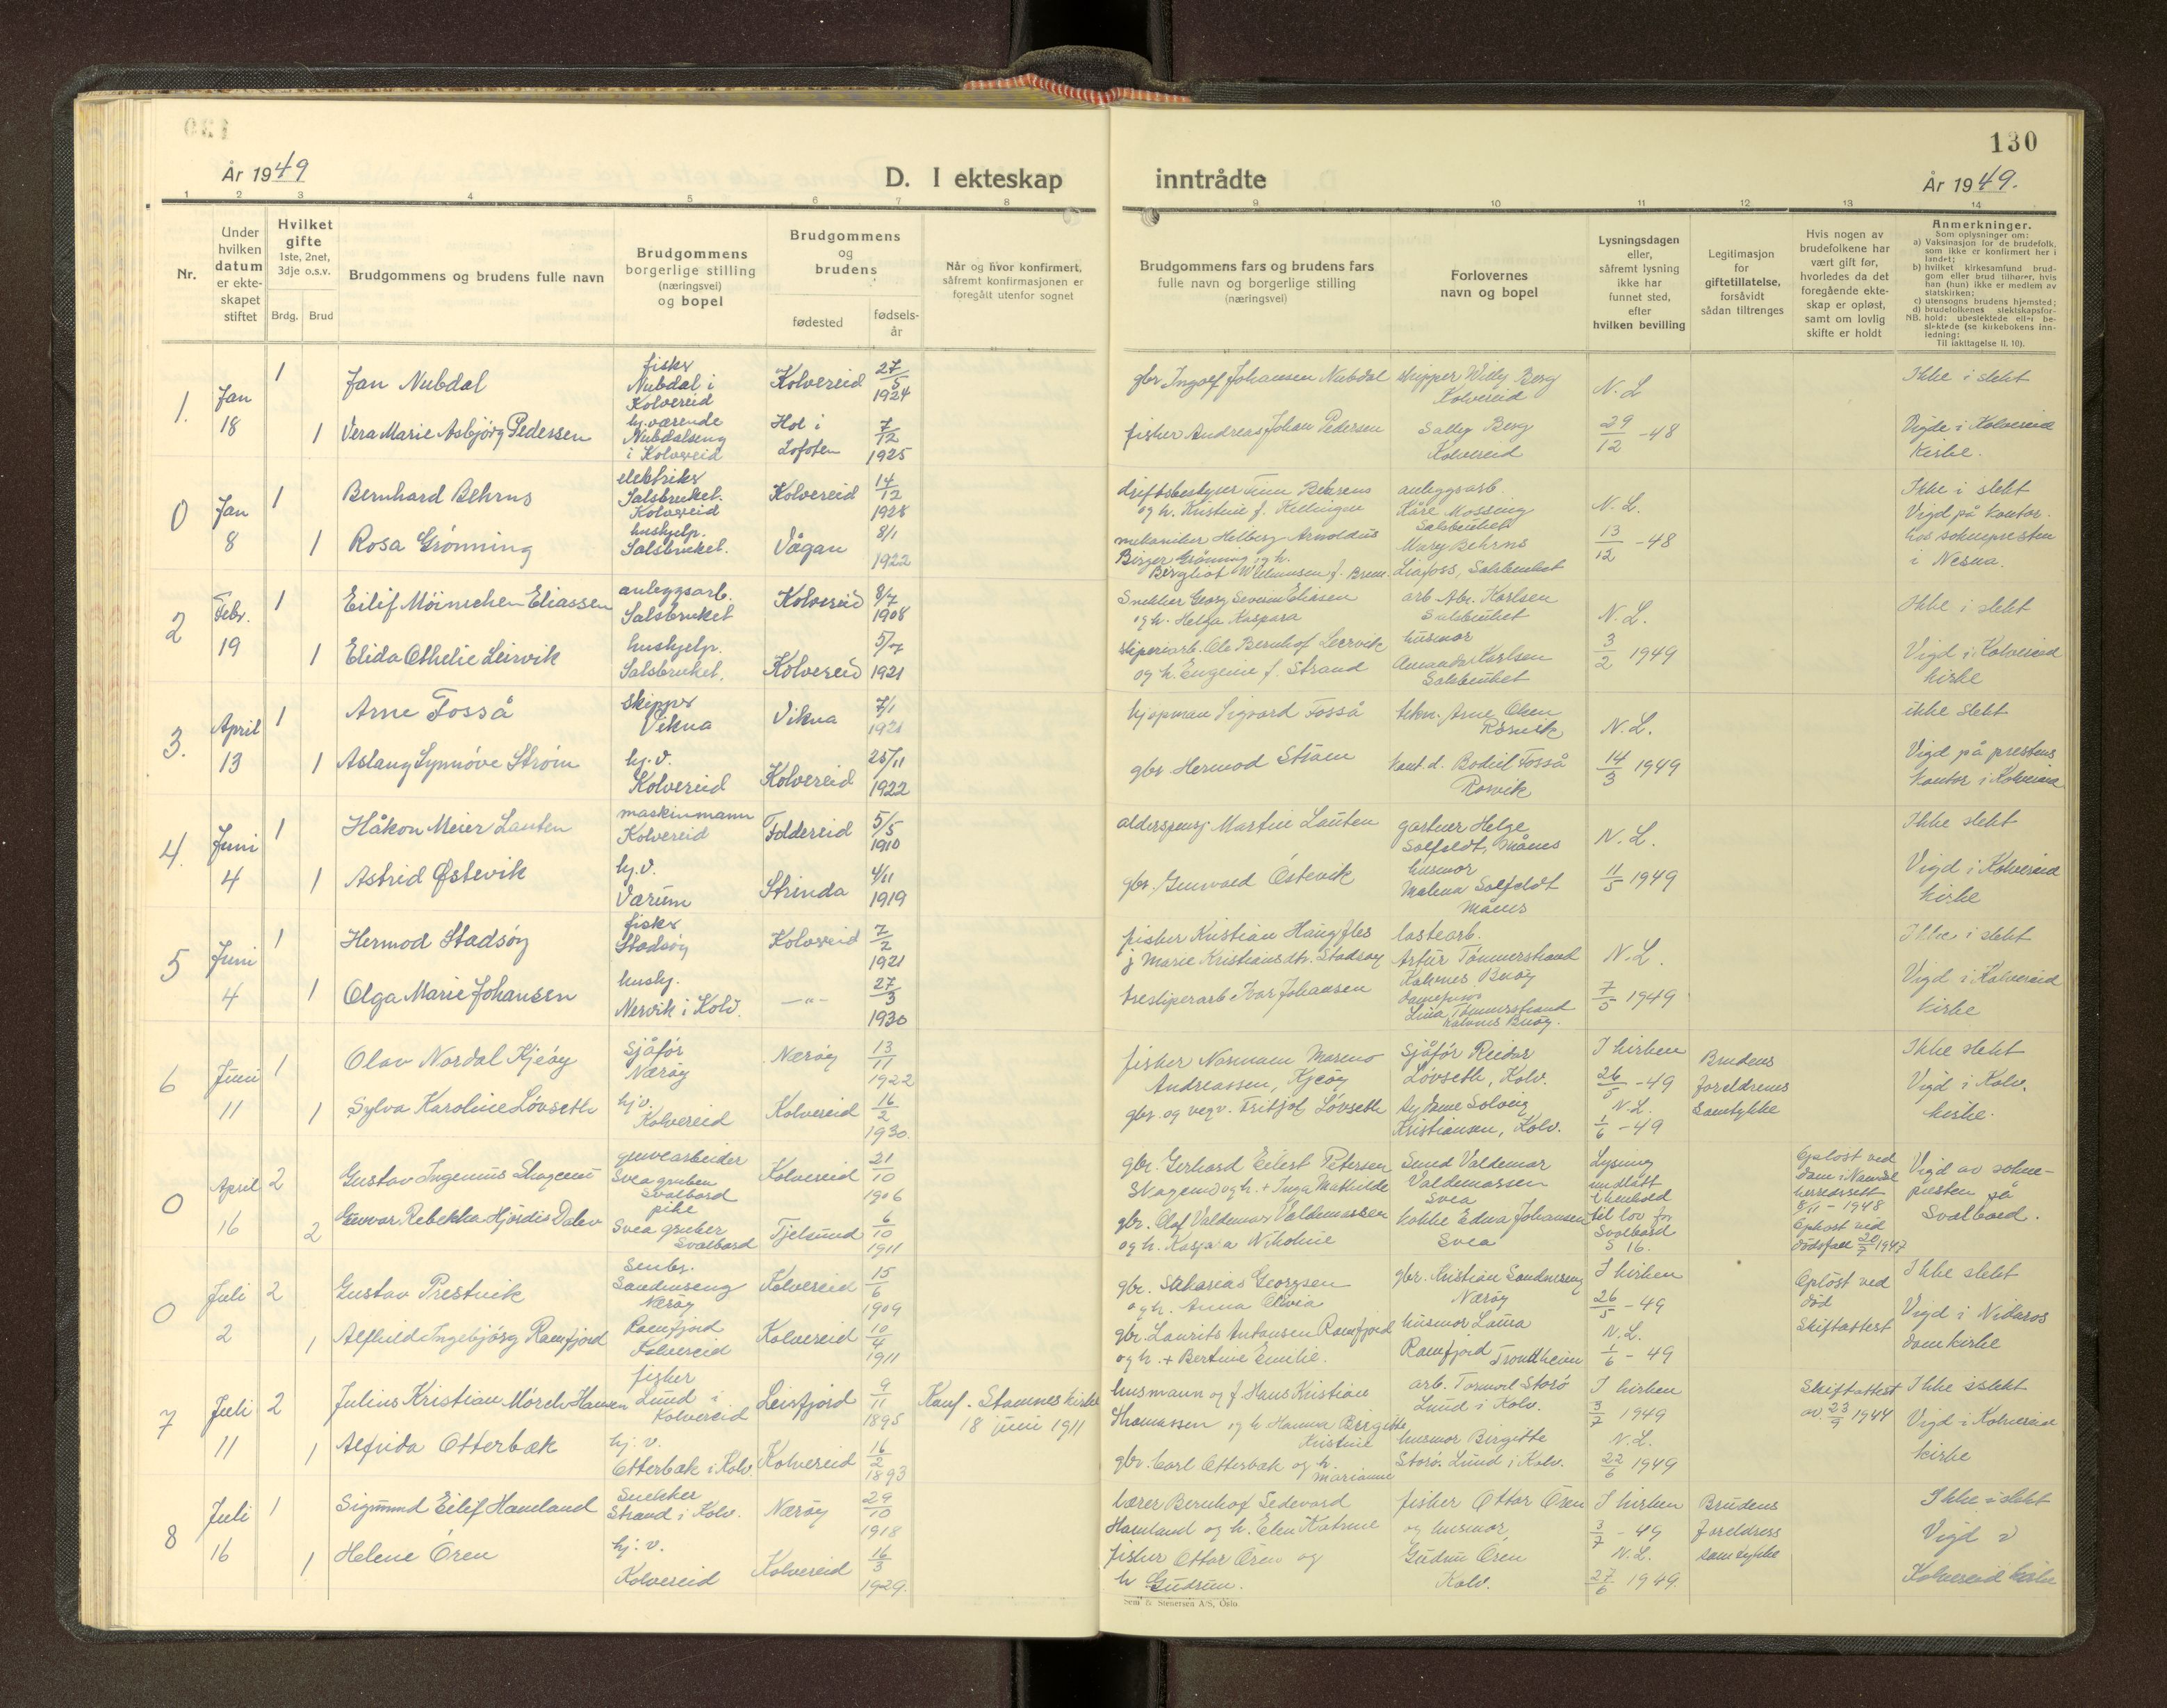 130
År 1949
D. I ekteskap inntrådte
År 1949.
1 2 3 4 5 6 7 8 9 10 11 12 13 14
Nr.
Under hvilken datum er ekteskapet stiftet
Hvilket gifte 1ste, 2net, 3dje o.s.v.
Brdg. Brud
Brudgommens og brudens fulle navn
Brudgommens borgerlige stilling (næringsvei) og bopel
Brudgommens og brudens
fødested
fødsels-år
Når og hvor konfirmert, såfremt konfirmasjonen er foregått utenfor sognet
Brudgommens fars og brudens fars fulle navn og borgerlige stilling (næringsvei)
Forlovernes navn og bopel
Lysningsdagen eller, såfremt lysning ikke har funnet sted, efter hvilken bevilling
Legitimasjon for giftetillatelse, forsåvidt sådan tiltrenges
Hvis nogen av brudefolkene har vært gift før, hvorledes da det foregående ekteskap er opløst, samt om lovlig skifte er holdt
Anmerkninger.
Som oplysninger om:
a) Vaksinasjon for de brudefolk, som ikke er konfirmert her i landet;
b) hvilket kirkesamfund brudgom eller brud tilhører, hvis han (hun) ikke er medlem av statskirken;
c) utensogns brudens hjemsted;
d) brudefolkenes slektskapsforhold: ubeslektede eller beslektede (se kirkebokens innledning:
NB.
Til iakttagelse II, 10).
1. Jan 18
1 Jan Nubdal
fisker Nubdal i Kolvereid
Kolvereid 27/5 1924
gbr Ingolf Johansen Nubdal
skipper Willy Berg Kolvereid
N. L. 29/12 -48
Ikke i slekt
1 Vera Marie Asbjørg Pedersen
hj.værende Nubdalseng i Kolvereid
Hol i Lofoten 7/12 1925
fisker Andreas Johan Pedersen
Sally Berg Kolvereid
Vigde i Kolvereid Kirke.
0 Jan 8
1 Bernhard Behrns
elektriker Salsbruket. Kolvereid
Kolvereid 14/12 1928
driftsbestyrer Behrens og h. Kristine f.
anleggsarb. Kåre Mossing Salsbruket
N. L. 13/12 -48
Ikke i slekt
1 Rosa Grønning
hushjelp. Salsbruket.
Vågan 8/1 1922
mekaniker Helberg Arnoldus Birger Grønning og h.
Mary Behrns Liafoss, Salsbruket
Vigd på kontor hos soknepresten i Nesna.
2 Febr. 19
1 Eilif Möinichen Eliassen
anleggsarb. Salsbruket
Kolvereid 8/7 1908
Snekker Georg Severin Eliasen og h. Helga Kaspara
arb. Abr. Karlsen Salsbruket
N. L. 3/2 1949
Ikke i slekt
1 Elida Othelie Leirvik
hushjelp. Salsbruket.
Kolvereid 5/7 1921
sliperiarb. Ole Bernhof Leirvik og h. Eugenie f. Strand
husmor Amanda Karlsen Salsbruket
Vigd i Kolvereid kirke
3. April 13
1 Arne Fosså
skipper Vikna
Vikna 7/1 1921
kjøpman Sigvard Fosså
tekn. Arne Olsen Rørvik
N. L. 14/3 1949
ikke slekt
1 Aslaug Synnöve Ström
hj.v. Kolvereid
Kolvereid 25/11 1922
gbr Hermod Ström
Bodil Fosså Rørvik
Vigd på prestens kontor i Kolvereid
4. Juni 4
1 Håkon Meier Lauten
maskinmann Kolvereid
Foldereid 5/5 1910
alderspensj Martin Lauten
gartner Helge Solfeldt, Måneset
N. L. 11/5 1949
Ikke slekt
1 Astrid Østevik
hj.v. Varum
Strinda 4/11 1919
gbr. Gunvald Östevik
husmor Malena Solfeldt
Vigd i Kolvereid kirke
5 Juni 4
1 Hermod Stadsöy
fisker Stadsöy
Kolvereid 7/2 1921
fisker Kristian Haugfles f Marie Kristiansdtr. Stadsøy
lastearb. Artur Tømmerstrand
N. L. 7/5 1949
Ikke i slekt
1 Olga Marie Johansen
hushj. Nervik i Kolv.
—"— 27/3 1930
tresliperarb Ivar Johansen
Lina Tømmerstrand
Vigd i Kolvereid kirke
6 Juni 11
1 Olav Nordal Kjeöy
Sjåför Næröy
Næröy 13/11 1922
fisker Normann Moreno Andreassen, Kjeöy
Sjåför Reidar Lövseth, Kolv.
I kirken 26/5 -49
Brudens foreldrenes samtykke
Ikke slekt
1 Sylva Karoline Lövseth
hj.v. Kolvereid
Kolvereid 16/2 1930.
gbr. og vegv. Fritjof Lövseth
Solveig Kristiansen, Kolv.
N. L. 1/6 -49
Vigd i Kolv. kirke.
0 April 16
2 Gustav Ingenius Skagemo
gruvearbeider Svea gruben Svalbard
Kolvereid 21/10 1906
gbr. Gerhard Eilert Petersen Skagemo og h. + Inga Mathilde
Smed Valdemar Valdemarsen Svea
Lysning innlått i henhold til lov for Svalbard § 16.
Oplöst ved dom i Namdal herredsrett 8/11 - 1948
Vigd av sokne-presten på Svalbard.
2 Gunvor Rebekka Hjördis Dalen
pike Svea gruber Svalbard
Tjelsund 6/10 1911
gbr. Olaf Valdemar Valdemarsen og h. Kaspara Nikoline
kokke Edna Johansen Svea
Oplöst ved dödsfall 20/7 1947
0 Juli 2
2 Gustav Prestvik
Sandneseng Næröy
Kolvereid 15/6 1909
gbr. Sakarias Georgsen og h. Anna Olivia
gbr. Kristian Sandneseng Næröy
I kirken 26/5 -49
Oplöst ved död Skiftattest
Ikke slekt
1 Alfhild Ingebjörg Ramfjord
Ramfjord Kolvereid
Kolvereid 10/4 1911
gbr. Laurits Antonsen Ramfjord og h. + Bertine Emilie.
husmor Laura Ramfjord Trondheim
N. L. 1/6 - 49
Vigd i Nidaros domkirke
7 Juli 11
2 Julius Kristian Mörch Hansen
fisker Lund i Kolvereid
Leirfjord 9/11 1895
Konf. Stamnes kirke 18 juni 1911
husmann og f Hans Kristian Thomassen og h Hanna Bergitte Kristine
arb. Tormod Storö Lund i Kolv.
I kirken 3/7 1949
Skiftattest av 23/9 1944
Ikke i slekt
1 Alfrida Otterbæk
hj. v. Otterbæk i Kolv.
Kolvereid 16/2 1893
gbr. Carl Otterbæk og h. Marianne
husmor Birgitte Storö. Lund i Kolv.
N. L. 22/6 1949
Vigd i Kolvereid kirke
8 Juli 16
1 Sigmund Eilif Hamland
Snekker Strand i Kolv.
Næröy 29/10 1918
lærer Bernhof Sedevard Hamland og h. Elen Katrine
fisker Ottar Ören og husmor
I kirken 3/7 - 49
Brudens foreldres samtykke
Ikke i slekt
1 Helene Ören
hj. v. Kolvereid
Kolvereid 16/3 1929.
fisker Ottar Ören og h Gudrun.
Gudrun Ören Kolv.
N. L. 27/6 1949.
Vigd i Kolvereid kirke
Sem & Stenersen A/S, Oslo